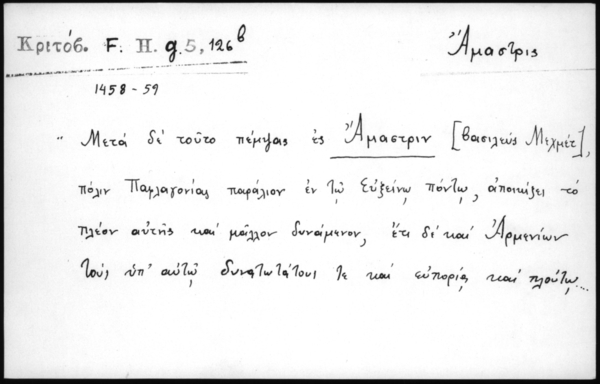 Κριτόβ. F. H. g. 5, 126ᵇ
Ἄμαστρις
1458 - 59
" Μετὰ δὲ τοῦτο πέμψας ἐς Ἄμαστριν [βασιλεὺς Μεχμέτ],
πόλιν Παφλαγονίας παράλιον ἐν τῷ Εὐξείνῳ πόντῳ, ἀποικίζει τὸ
πλέον αὐτῆς καὶ μᾶλλον δυνάμενον, ἔτι δὲ καὶ Ἀρμενίων
τοὺς ὑπ' αὐτῷ δυνατωτάτους τε καὶ εὐπορίᾳ καὶ πλούτῳ...